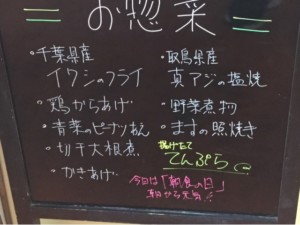 お惣菜
・千葉県産
イワシのフライ
・鶏からあげ
・青菜のピーナツあえ
・切干大根煮
・かきあげ
・鳥取県産
真アジの塩焼
・野菜煮物
・ますの照焼き
揚げたて
てんぷら
今日は「朝食の日」
朝から元気!!